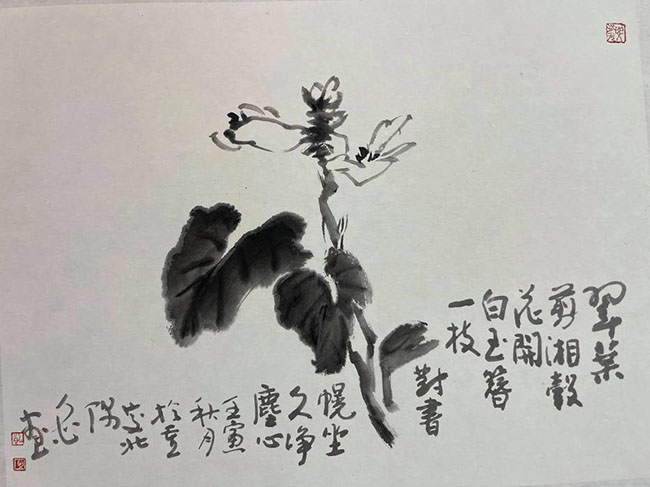 翠葉
剪湘縠
花開
白玉簪
一枝
對書
幌坐
久净
塵心
壬寅
秋月
於
北
隅
畫